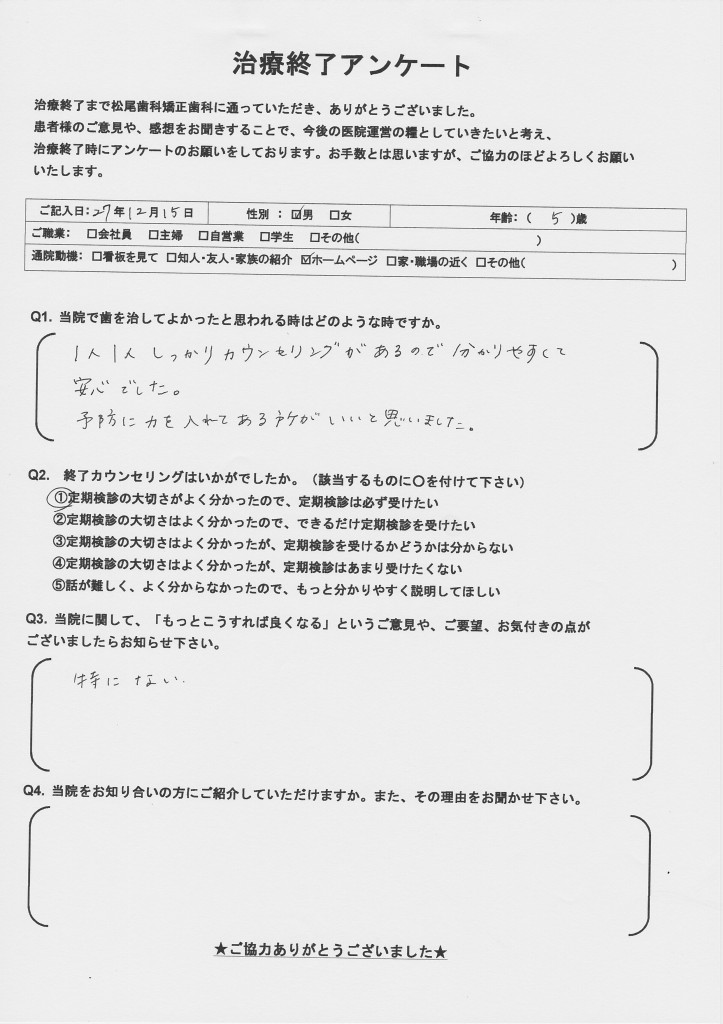 治療終了アンケート
治療終了まで松尾歯科矯正歯科に通っていただき、ありがとうございました。
患者様のご意見や、感想をお聞きすることで、今後の医院運営の糧としていきたいと考え、
治療終了時にアンケートのお願いをしております。お手数とは思いますが、ご協力のほどよろしくお願い
いたします。
ご記入日:27年12月15日 性別 : ☑男 □女 年齢:( 5 )歳
ご職業: □会社員 □主婦 □自営業 □学生 □その他( )
通院動機: □看板を見て □知人・友人・家族の紹介 ☑ホームページ □家・職場の近く □その他( )
Q1. 当院で歯を治してよかったと思われる時はどのような時ですか。
1人1人しっかりカウンセリングがあるので分かりやすくて
安心でした。
予防に力を入れてある所がいいと思いました。
Q2. 終了カウンセリングはいかがでしたか。(該当するものに〇を付けて下さい)
①定期検診の大切さがよく分かったので、定期検診は必ず受けたい
②定期検診の大切さはよく分かったので、できるだけ定期検診を受けたい
③定期検診の大切さはよく分かったが、定期検診を受けるかどうかは分からない
④定期検診の大切さはよく分かったが、定期検診はあまり受けたくない
⑤話が難しく、よく分からなかったので、もっと分かりやすく説明してほしい
Q3. 当院に関して、「もっとこうすれば良くなる」というご意見や、ご要望、お気付きの点が
ございましたらお知らせ下さい。
特にない.
Q4. 当院をお知り合いの方にご紹介していただけますか。また、その理由をお聞かせ下さい。
★ご協力ありがとうございました★